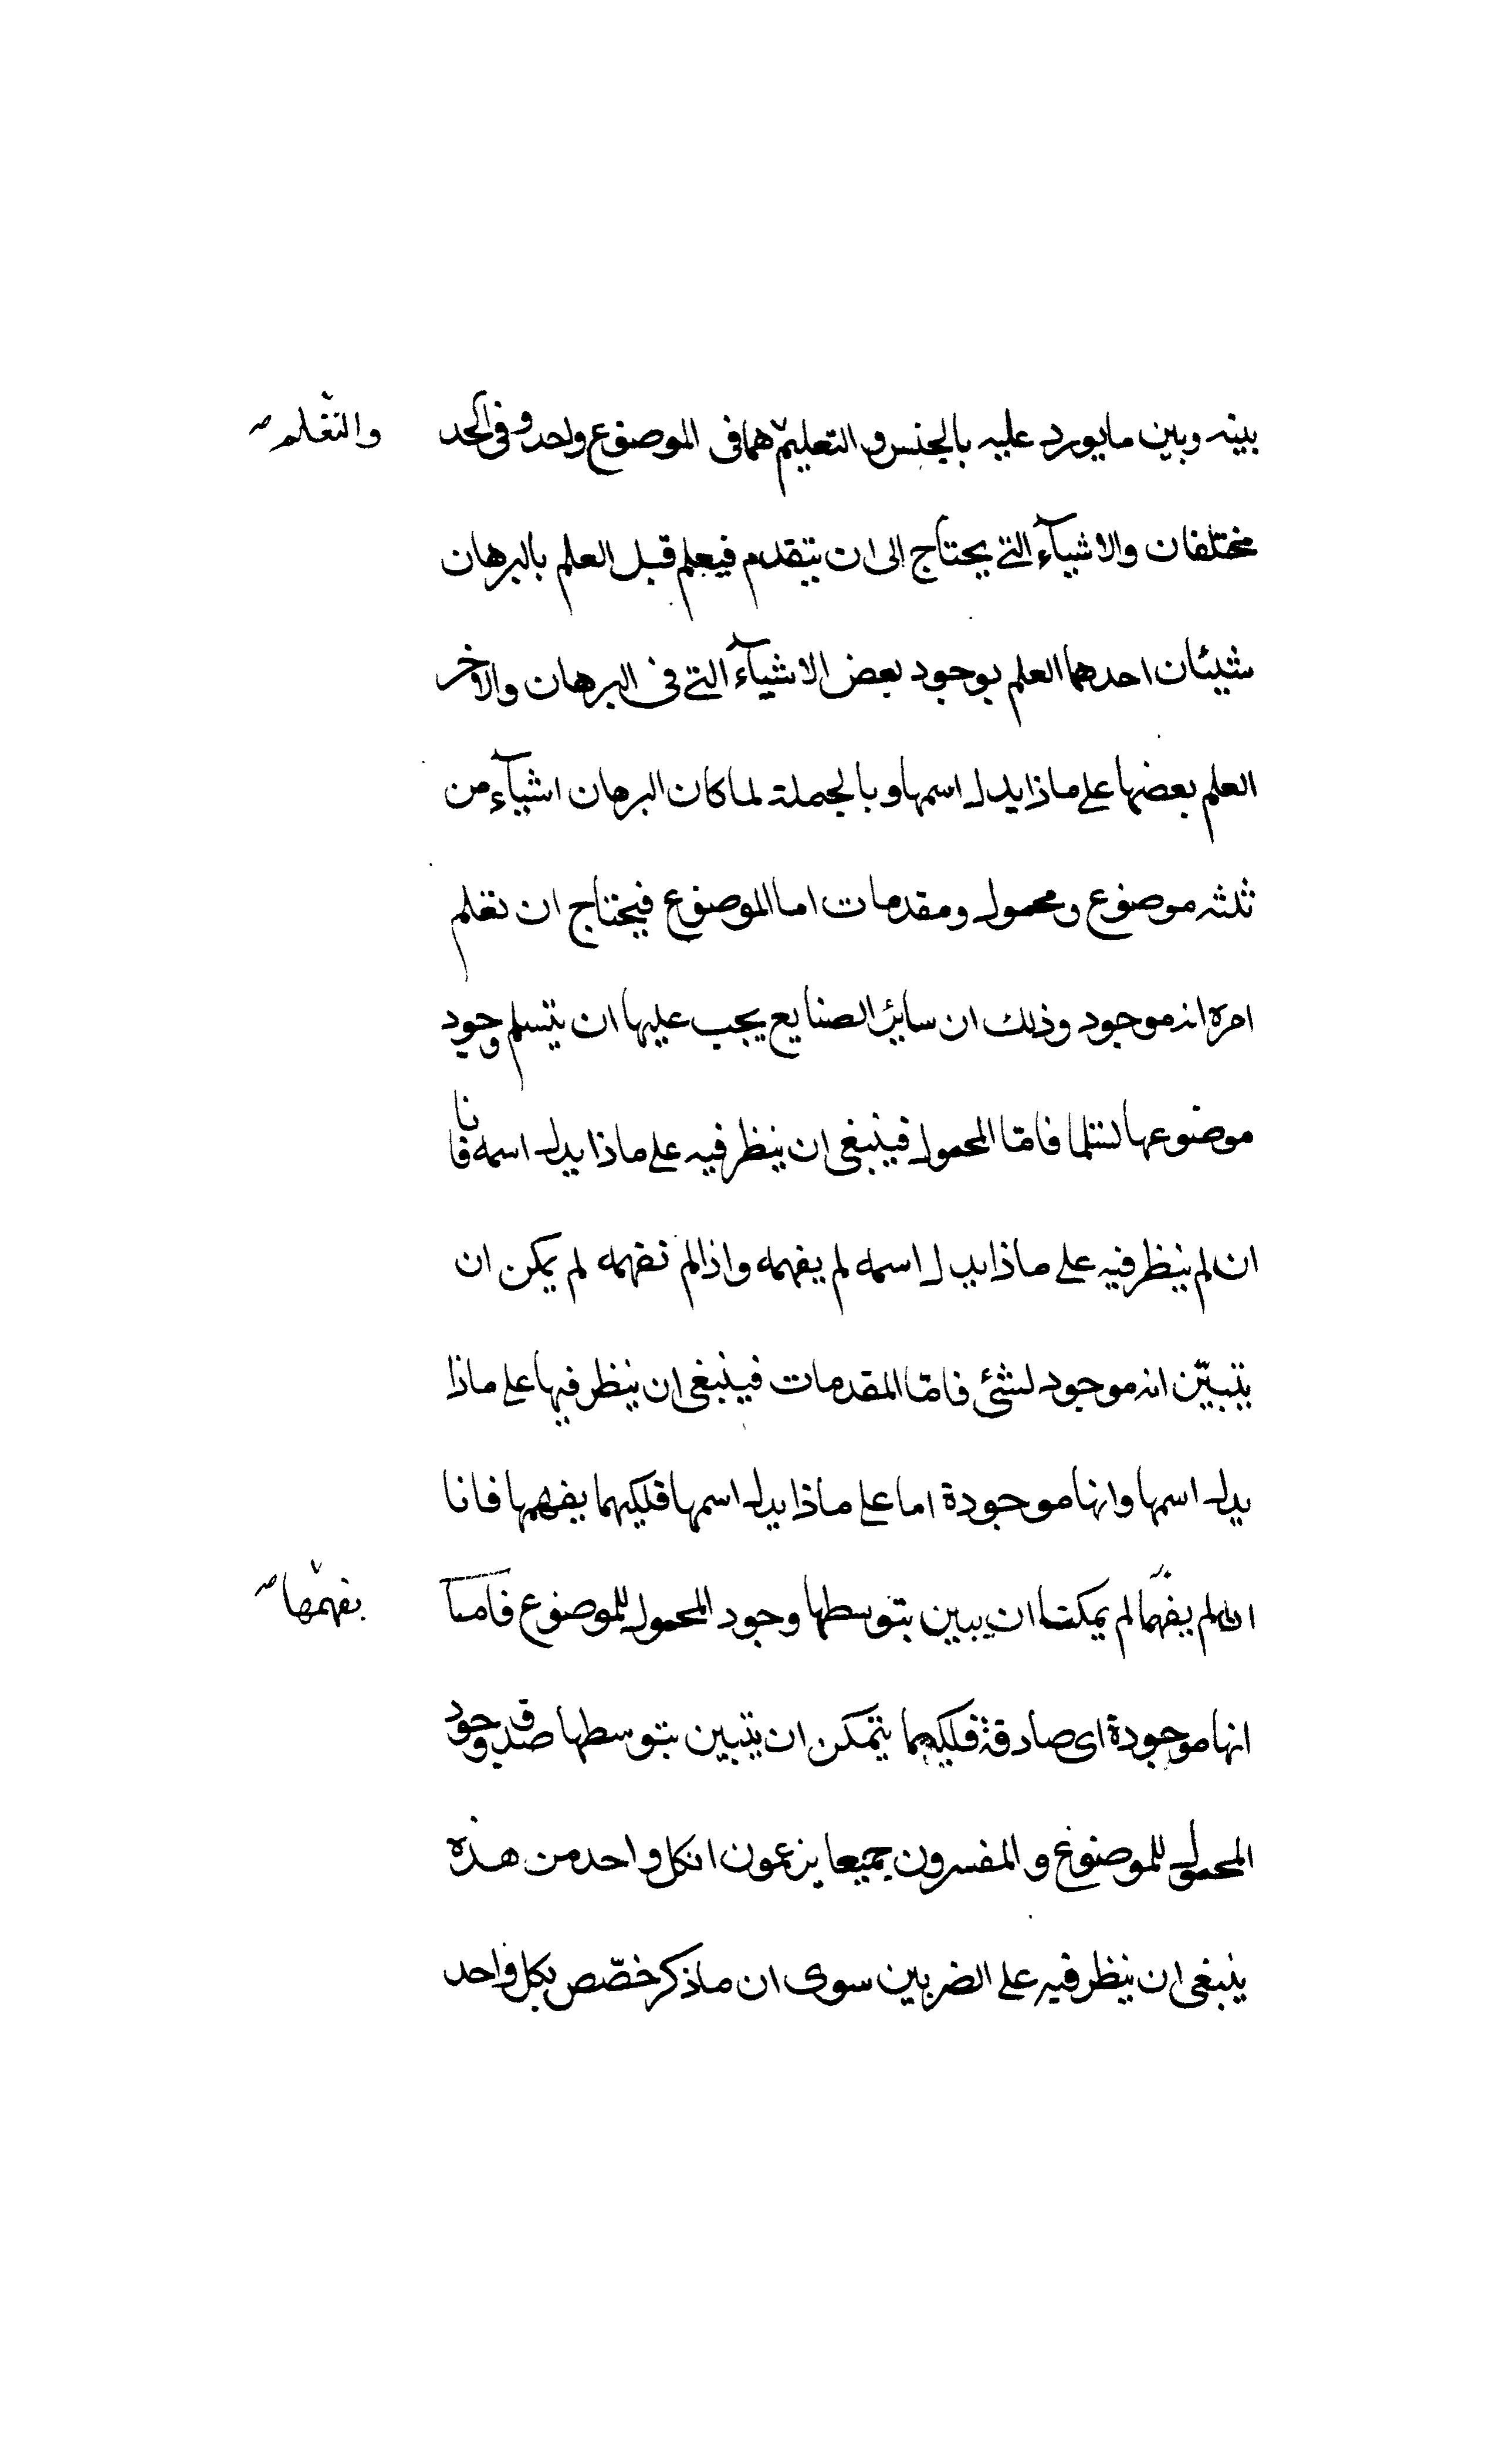 بينه وبين ما يورد عليه بالجنس و التعليم هما فى الموضوع واحد و فى الحد
والتعلم صح
مختلفان والاشيآء التى يحتاج الى ان يتقدم فيعلم قبل العلم بالبرهان
شيئان احدهما العلم بوجود بعض الاشيآء التى فى البرهان والاخر
العلم بعضها على ماذا يدل اسمها و بالجملة لما كان البرهان اشيآء من
ثلثه موضوع ومحمول ومقدمات اما الموضوع فيحتاج ان تعلم
امره انه موجود وذلك ان سائر الصنايع يجب عليها ان يتسلم وجود
موضوعها فامّا المحمول فينبغى ان ينظر فيه على ماذا يدل اسمه فانا
ان لم ينظر فيه على ماذا يدل اسمه لم يفهمه واذا لم تفهمه لم يمكن ان
يتبيّن انه موجود لشئ فامّا المقدمات فينبغى ان ينظر فيها على ماذا
يدل اسمها وانها موجودة اما على ماذا يدل اسمها فلكيما يفهمها فانا
لم يفهما لم يمكننا ان يبين بتوسطها وجود المحمول للموضوع فامآ
بفهمها صح
انها موجودة اى صادقة فلكيما يتمكن ان يتبين بتوسطها صدق وجود
المحمول للموضوع و المفسرون جميعا يزعمون ان كل واحد من هذه
ينبغى ان ينظر فيه على الضربين سوى ان ما ذكر خصّص بكل واحد